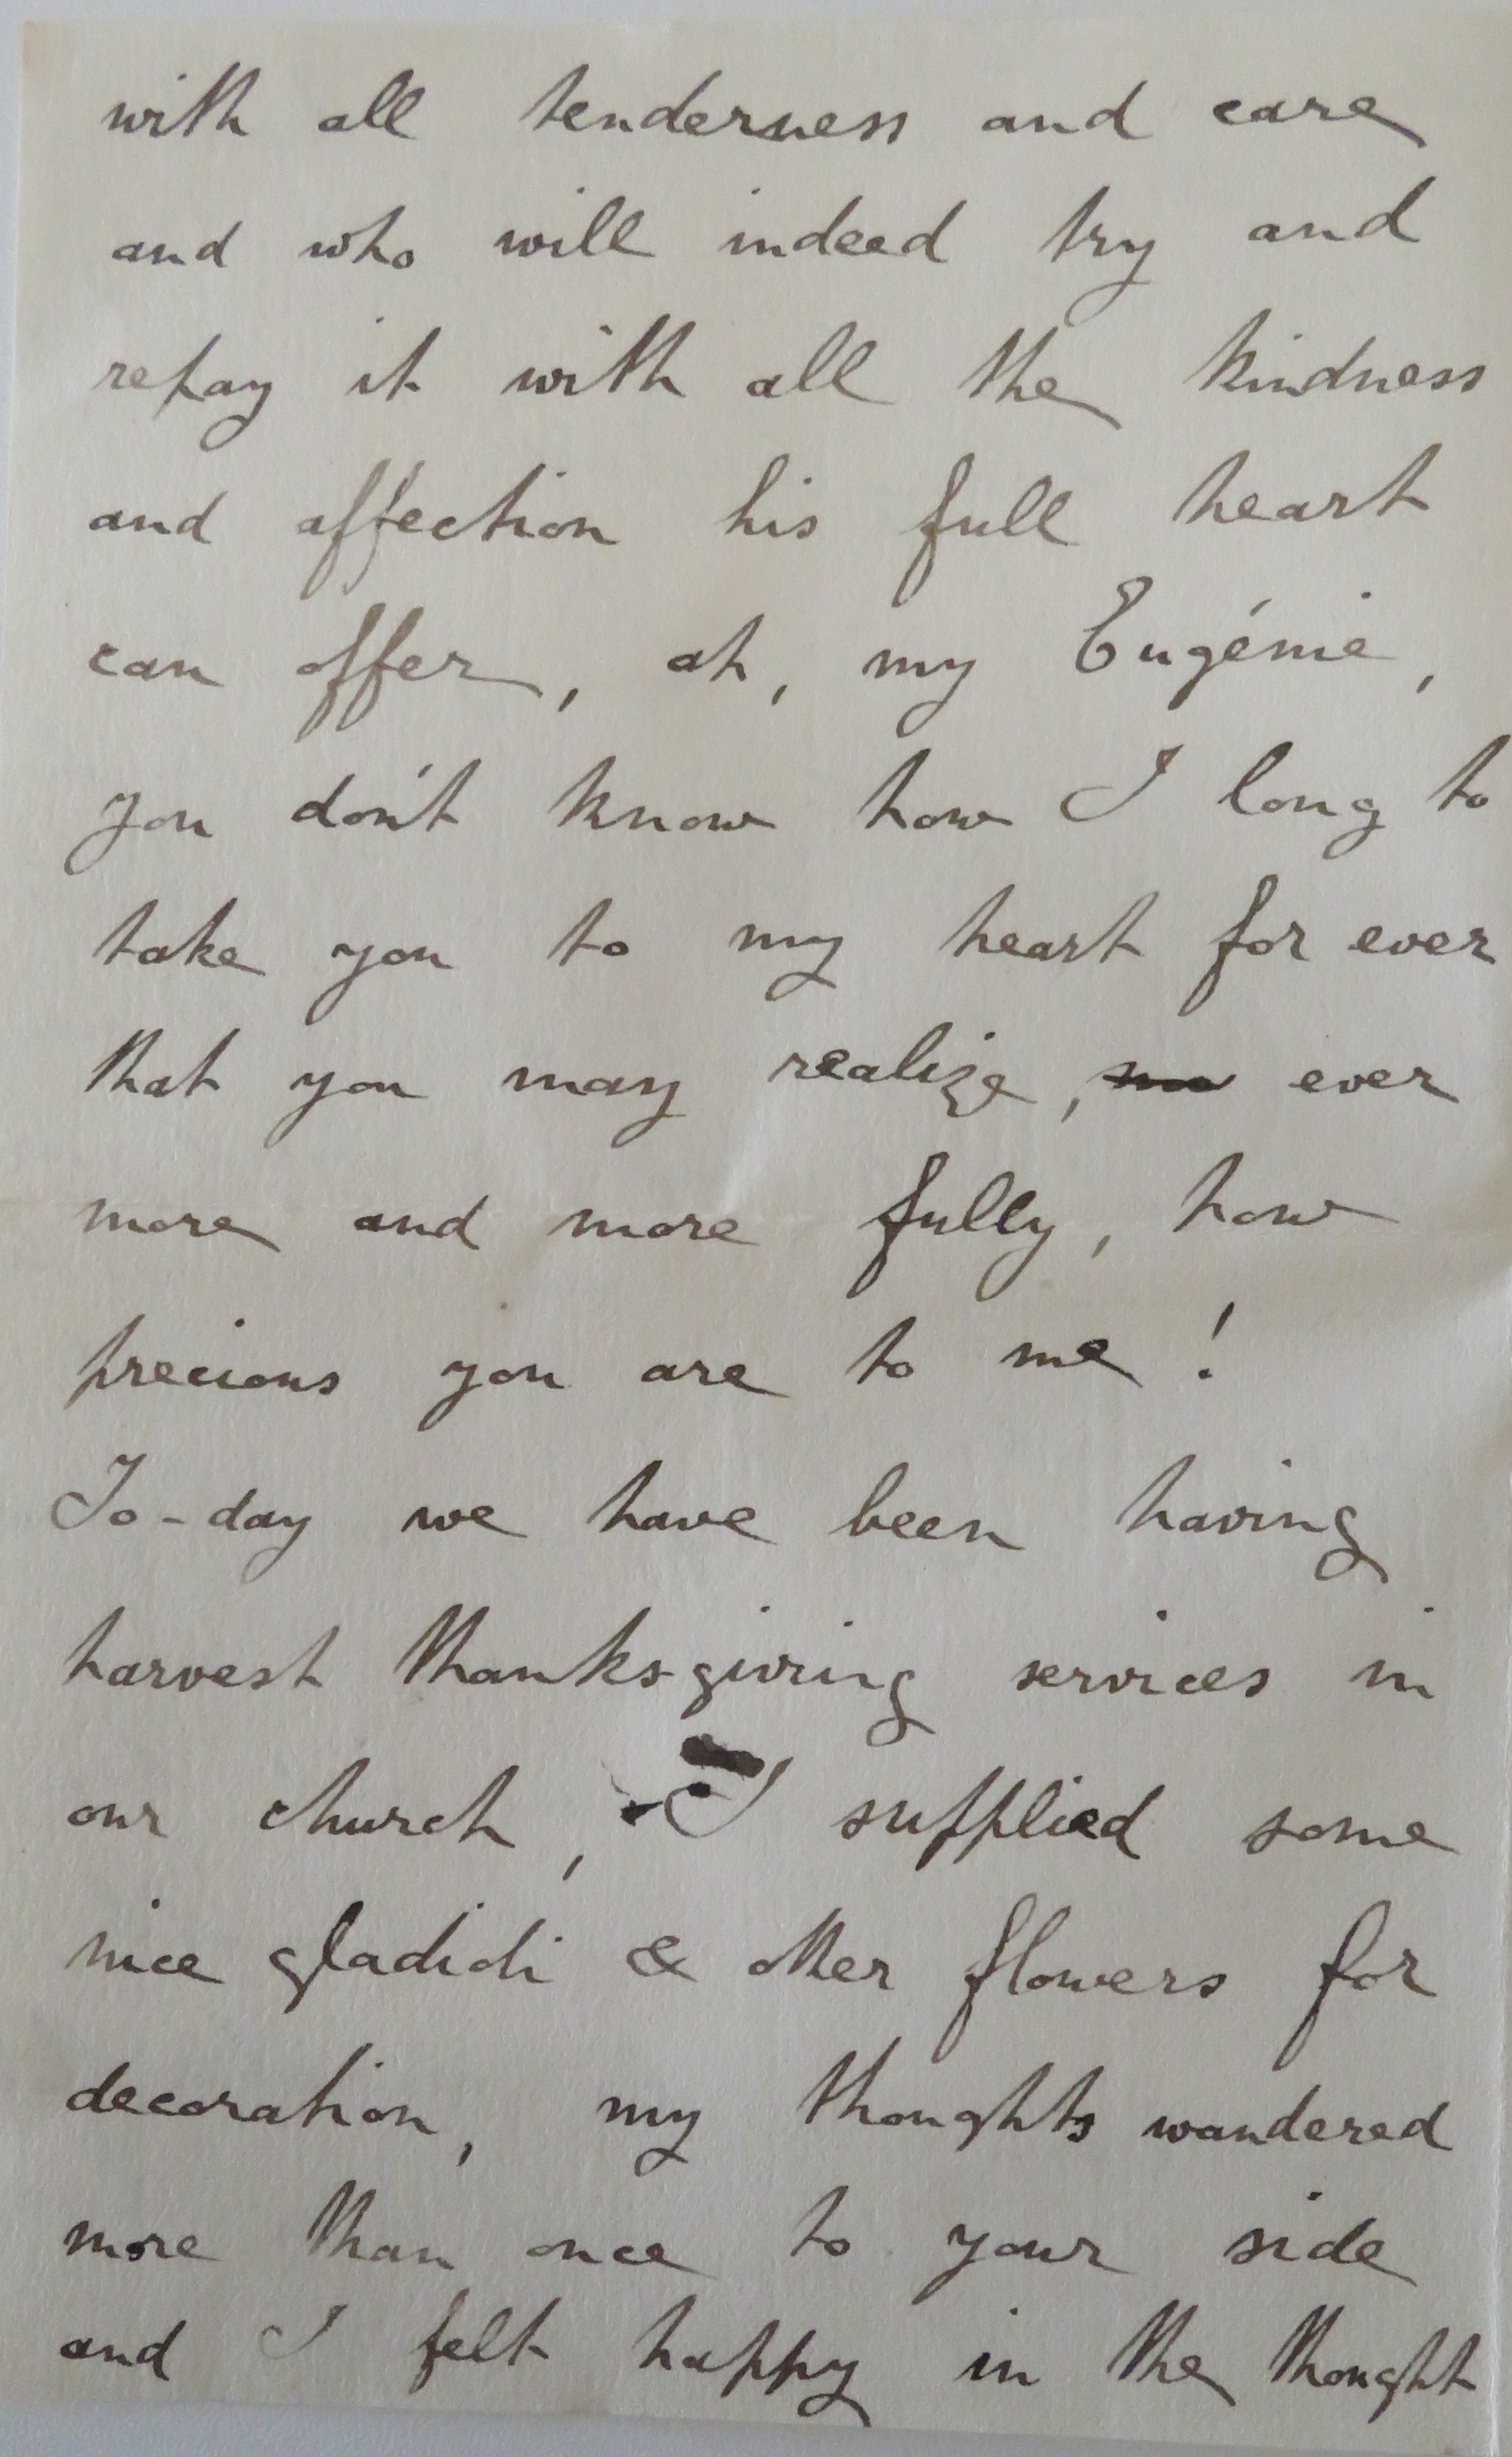 with all tenderness and care
and who will indeed try and
repay it with all the kindness
and affection his full heart
can offer, ah, my Eugénie,
you don't know how I long to
take you to my heart for ever
that you may realize, ever
more and more fully, how
precious you are to me!
To-day we have been having
harvest thanks-giving services in
our church, I supplied some
nice gladioli & other flowers for
decoration, my thoughts wandered
more than once to your side
and I felt happy in the thought